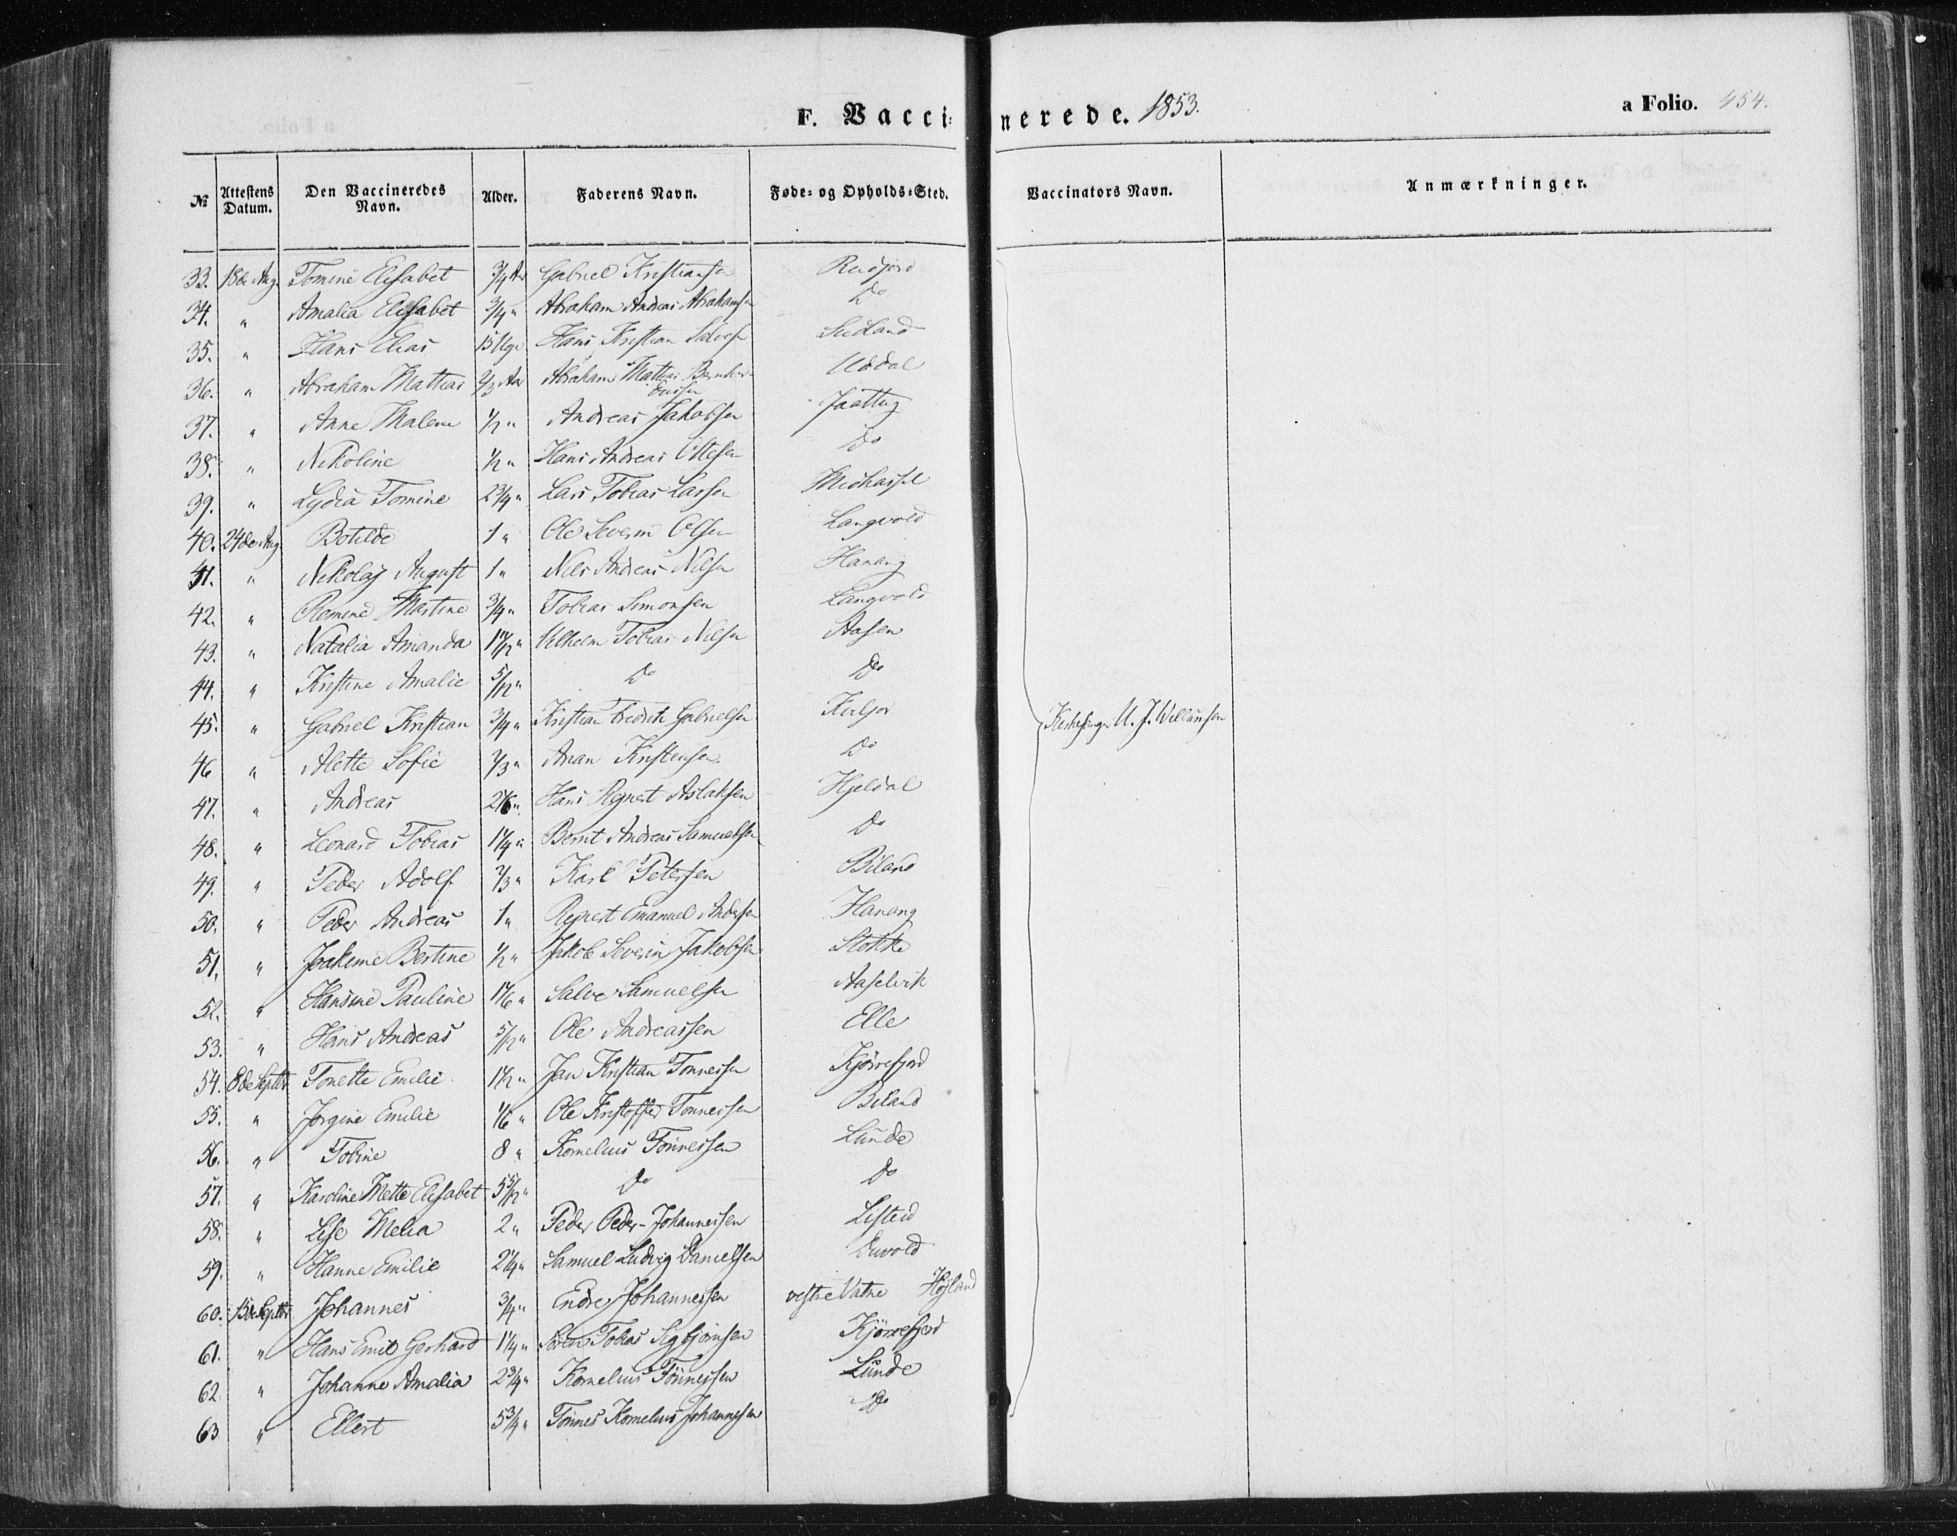 F. Vaccinerede. 1853.
a Folio. 454.
№ Attestens Datum. Den Vaccineredes Navn. Alder. Faderens Navn. Føde- og Opholds-Sted. Vaccinators Navn. Anmærkninger.
33. 18de Aug Tomine Elisabet 3/4 Aar Gabriel Kristiansen
34. " Amalia Elisabet 3/4 " Abraham Andreas Abrahamsen Do
35. " Hans Elias 15 Uger Hans Kristian Salvesen
36. " Abraham Mathias 2/3 Aar Abraham Mathias
37. " Anne Malene 1/2 " Andreas Jakobsen Jaatlug
38. " Nikoline 1/2 " Hans Andreas Do
39. " Lydia Tomine 2 3/4 " Lars Tobias Larsen Midhassel
40. 24de Aug Botilde 1 " Ole Severin Olsen Langvold
41. " Nikolaj August 1 " Nils Andreas Nilsen Hanang
42. " Romine Martine 3/4 " Tobias Simonsen Langvold
43. " Natalia Amanda Vilhelm Tobias Nilsen Aasen
44. " Kristine Amalie 5/12 " Do Do
45. " Gabriel Kristian 3/4 " Kristian Fredrik Gabrielsen
Kirkesanger U. J. Willumsen
46 " Alette Sofie 2/3 " Anan Kristensen Do
47. " Andreas 2 1/6 " Hans Regnert Aslaksen Hjeldal
48. " Leonard Tobias 1 1/4 " Bernt Andreas Samuelsen Do
49. " Peder Adolf 2/3 " Karl Petersen Biland
50. " Peder Andreas 1 " Regnert Emanuel Andersen Hanang
51. " Joakime Bertine 1/2 " Jakob Severin Jakobsen Stokke
52. " Hansine Pauline 1 1/6 " Salve Samuelsen Aaselvik
53. " Hans Andreas 5/12 " Ole Andreassen Elle
54. 8de Septbr Tonette Emilie 1 1/2 " Jan Kristian Tønnessen Kjørrefjord
55. " Jørgine Emilie 1/6 " Ole Kristoffer Tønnessen Biland
56. " Toline 8 " Kornelius Tønnessen Lunde
57. " Karoline Mette Elisabet 5 5/12 " Do Do
58. " Lise Melia 2 " Peder Peder-Johannessen Listeid
59. " Hanne Emilie 2 1/4 " Samuel Ludvig Danielsen Duvold
60. Septbr Johannes 3/4 " Endre Johannessen vestre Vatne Højland
61. " Hans Emil Gerhard 1 1/4 " Søren Tobias Sigbjørnsen Kjørrefjord
62 " Johanne Amalia 2 3/4 " Kornelius Tønnessen Lunde
63 " Ellert 5 3/4 " Tønnes Kornelius Johannessen Do